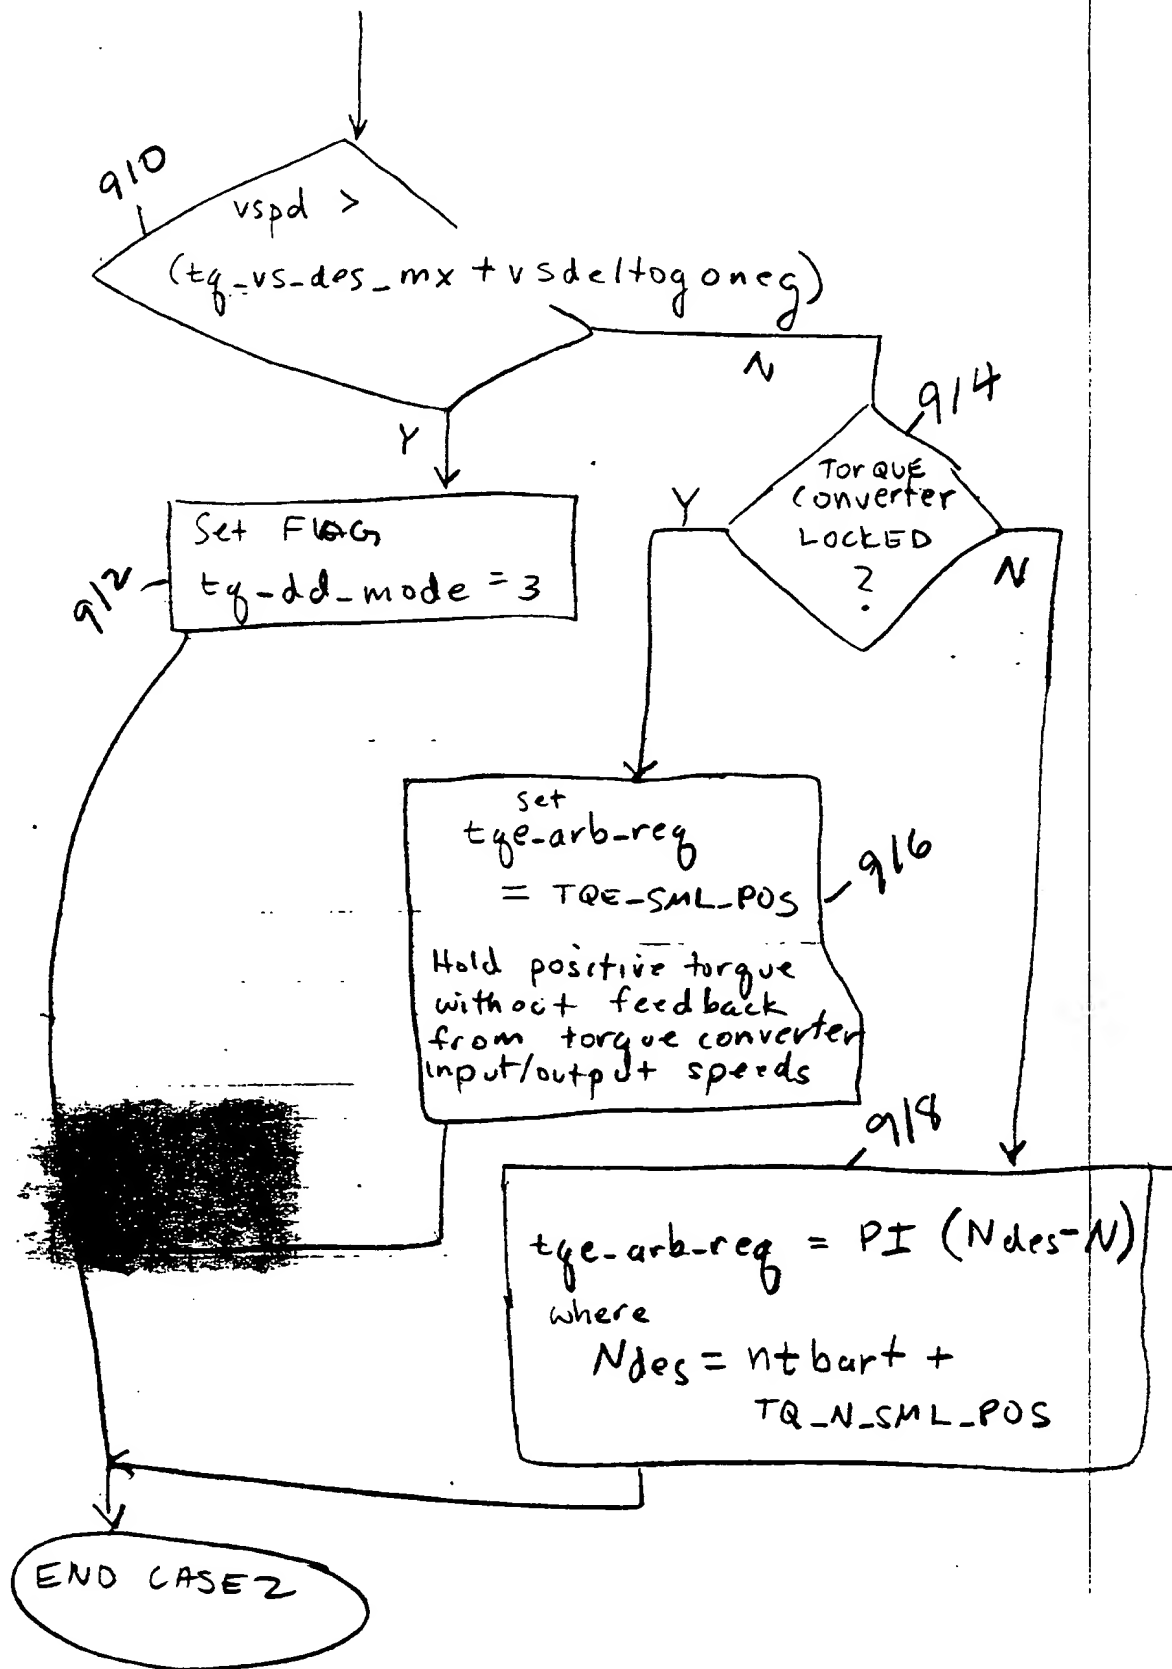 910
vspd >
(tq_vs_des_mx + vsdeltogoneg)
N
Y
914
TORQUE
Converter
LOCKED
?
Y
N
Set FLAG
tq-dd-mode = 3
912
set
tqe-arb-req
= TQE-SML-POS
916
Hold positive torque
without feedback
from torque converter
input/output speeds
918
tqe-arb-req = PI (Ndes-N)
where
Ndes = ntbart +
TQ_N_SML_POS
END CASE2